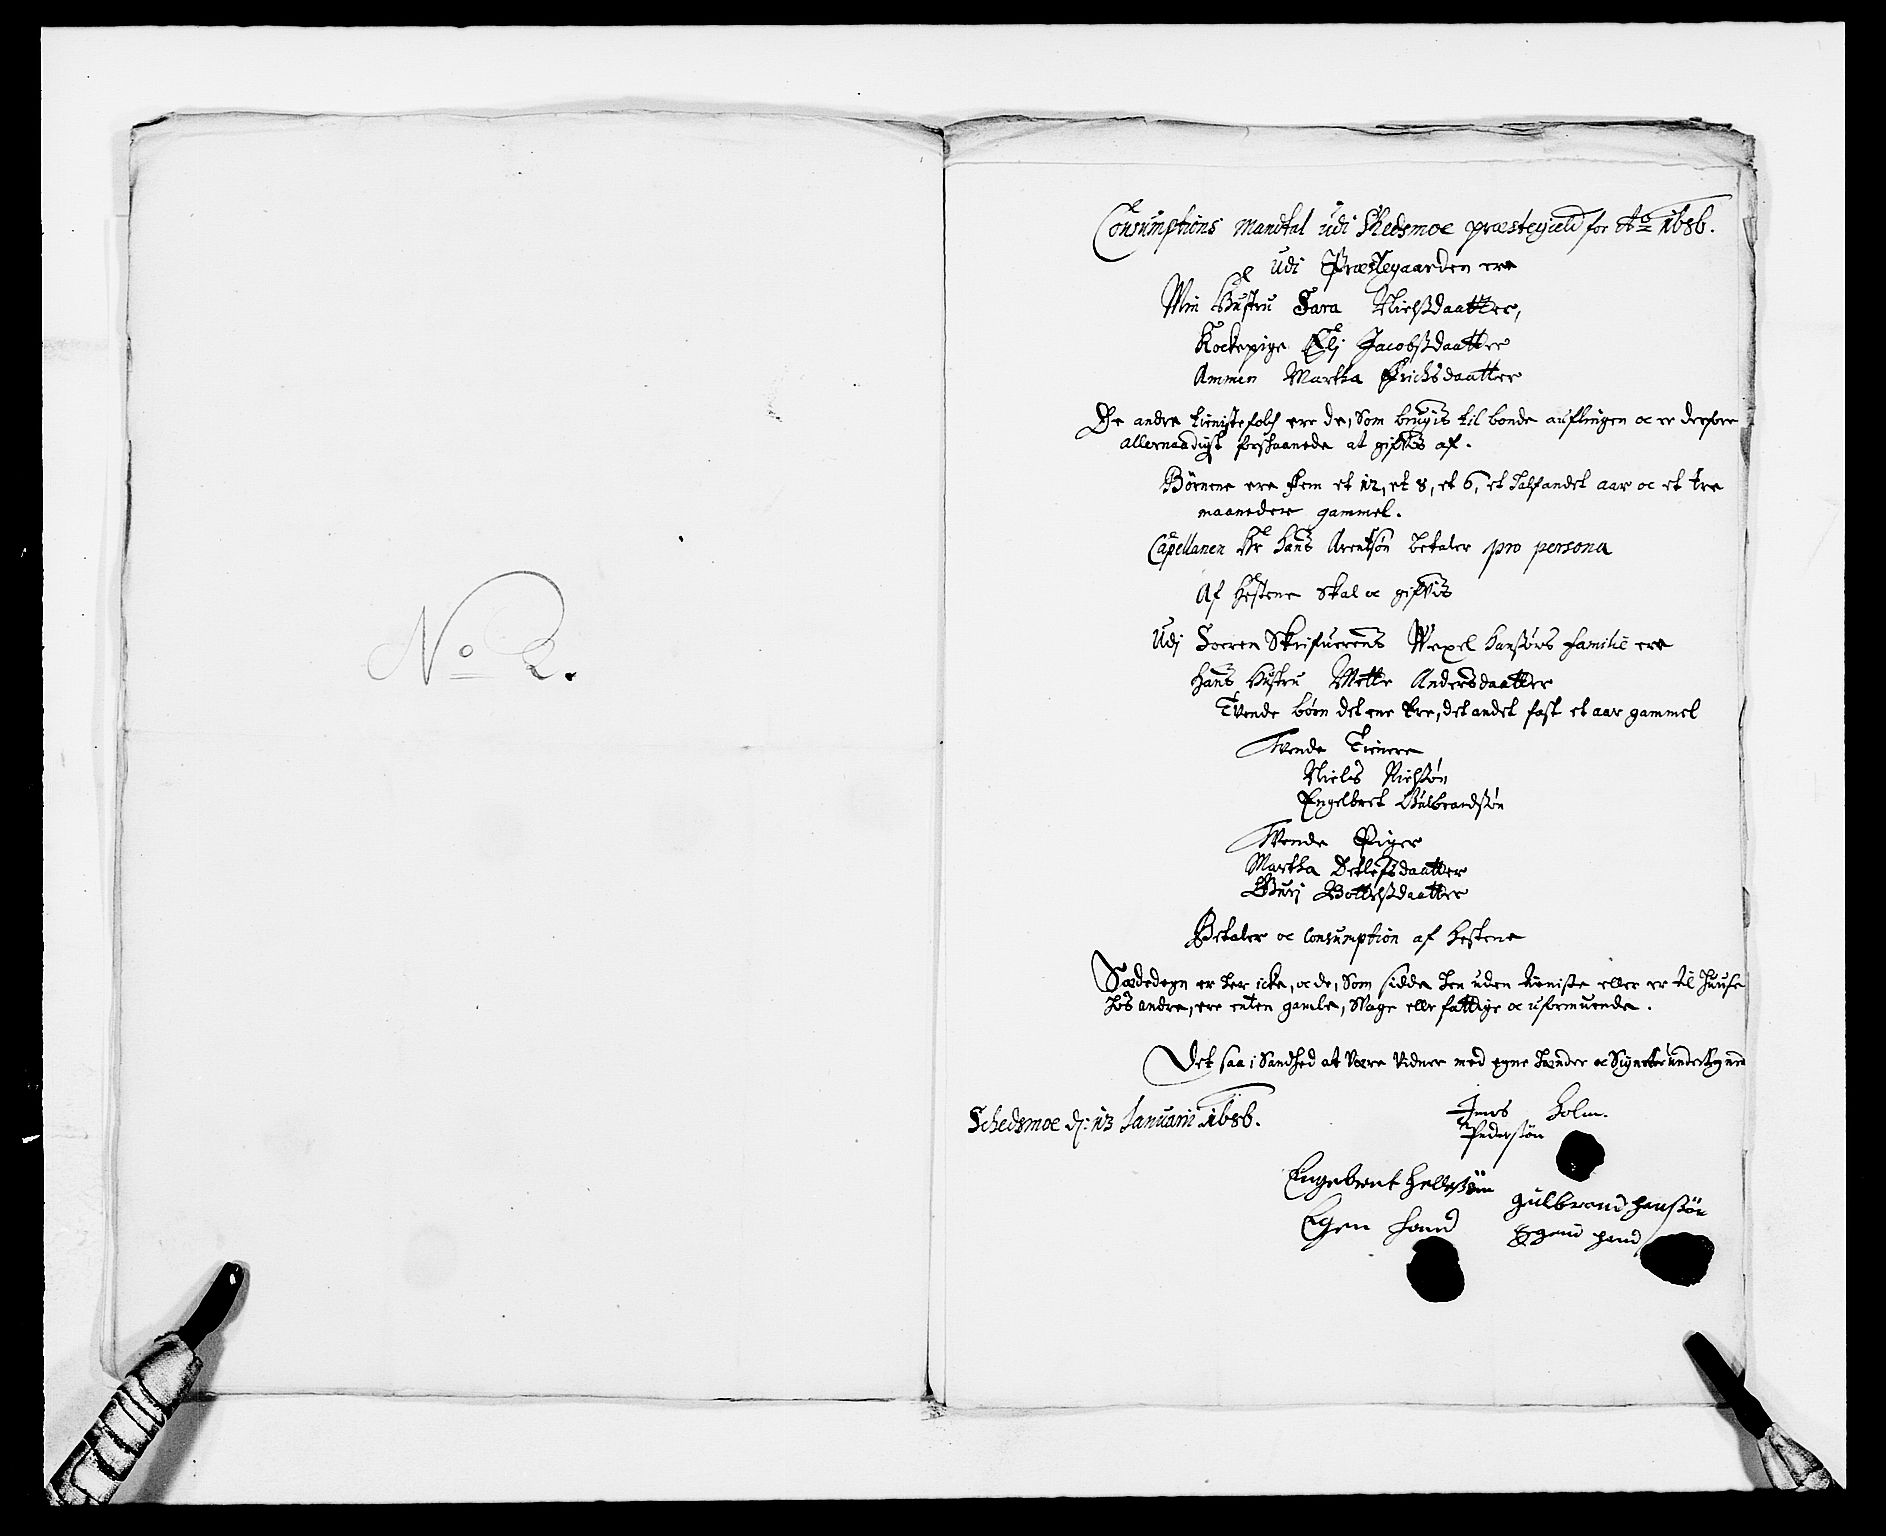 No 2.
Consumptions Mandtal udi Skedsmoe præstegield for Ao 1686.
udi Præstegaarden ere
Min Hustru Sara Nielsdaatter,
Kockepige Elj Jacobsdaatter
Ammen Martha Erichsdaatter
De andre tienistefolch ere de, Som brugis til bonde auflingen oc er derfore
allernaadigst forskaanede at giftis af.
Börnene ere fem et 12, et 8, et 6, et halfandet aar oc et tre
maaneder gammel.
Capellanen Hr Hans Arentsön betaler pro persona
Af Hestene skal oc gifvis
Udj Soeren Skrifuerens Wexel Hansöns familie ere
Hans Hustru Mette Andersdaatter
Tvende börn det ene tre, det andet fast et aar gammel
Tvende Tienere
Niels Nielsön
Engelbret Gulbrandsön
Tvende Piger
Martha Detlefsdaatter
Gurj Bottelsdaatter
Betaler oc Consumption af Hestene
Sædedegn er her icke, oc de, Som sidde hen uden tieniste eller er til Huuse
hos andre, ere enten gamle, Svage eller fattige oc uformuende.
Det saa i Sandhed at være vidner med egne hænder oc Signeter undertegned
Schedsmoe d: 13 Januarii 1686.
Holm.
Pedersön
Engebret
gulbrand hansön
Egen haand
Egend hand